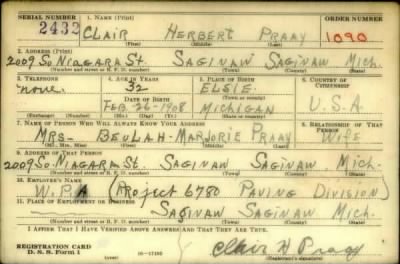 SERIAL NUMBER 1. NAME (Print) ORDER NUMBER
2432 CLAIR HERBERT PRAAY 1090
(First) (Middle) (Last)
2. ADDRESS (Print)
2009 So. NIAGARA St. SAGINAW SAGINAW MICH.
(Number and street or R. F. D. number) (Town) (County) (State)
3. TELEPHONE 4. AGE IN YEARS 5. PLACE OF BIRTH 6. COUNTRY OF CITIZENSHIP
none. 32 ELSIE
DATE OF BIRTH (Town or county)
FEB-26-1908 MICHIGAN U.S.A.
(Exchange) (Number) (Mo.) (Day) (Yr.) (State or country)
7. NAME OF PERSON WHO WILL ALWAYS KNOW YOUR ADDRESS 8. RELATIONSHIP OF THAT PERSON
MRS- BEULAH-MARJORIE PRAAY Wife
(Mr., Mrs., Miss) (First) (Middle) (Last)
9. ADDRESS OF THAT PERSON
2009 So. NIAGARA St. SAGINAW SAGINAW. Mich.
(Number and street or R. F. D. number) (Town) (County) (State)
10. EMPLOYER'S NAME
W.P.A (Project 6780 PAVING DIVISION)
11. PLACE OF EMPLOYMENT OR BUSINESS
SAGINAW SAGINAW MICH.
(Number and street or R. F. D. number) (Town) (County) (State)
I AFFIRM THAT I HAVE VERIFIED ABOVE ANSWERS AND THAT THEY ARE TRUE.
REGISTRATION CARD
D. S. S. Form 1 16-17105 Clair H Praay